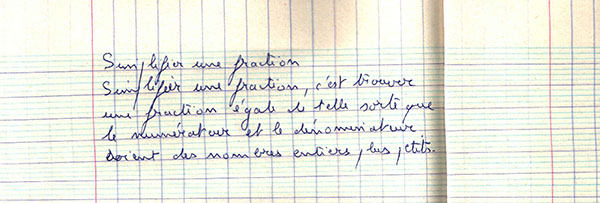 Simplifier une fraction
Simplifier une fraction, c'est trouver
une fraction égale de telle sorte que
le numérateur et le dénominateur
soient des nomres entiers plus ptits.